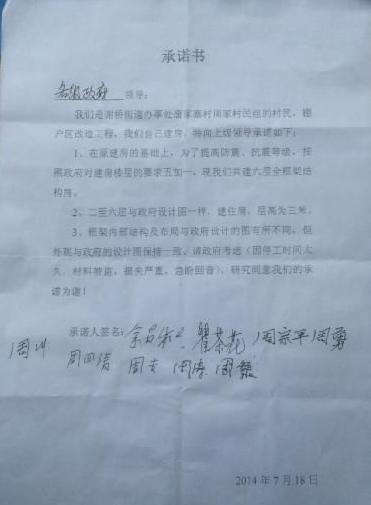 承诺书
各级政府 领导:
我们是谢桥街道办事处唐家寨村周家村民组的村民,棚
户区改造工程,我们自己建房,特向上级领导承诺如下:
1、在原建房的基础上,为了提高防震、抗震等级,按
照政府对建房楼层的要求五加一,现我们共建六层全框架结
构房。
2、二至六层与政府设计图一样,建住房,层高为三米。
3、框架内部结构及布局与政府设计的图有所不同,但
外观与政府的设计图保持一致。请政府考虑(因停工时间太
久,材料被盗,损失严重,急盼回音),研究同意我们的承
诺为谢!
承诺人签名: 翟茶花 周宗军 周勇
周川 周四清 周支 周涛
2014 年 7 月 18 日